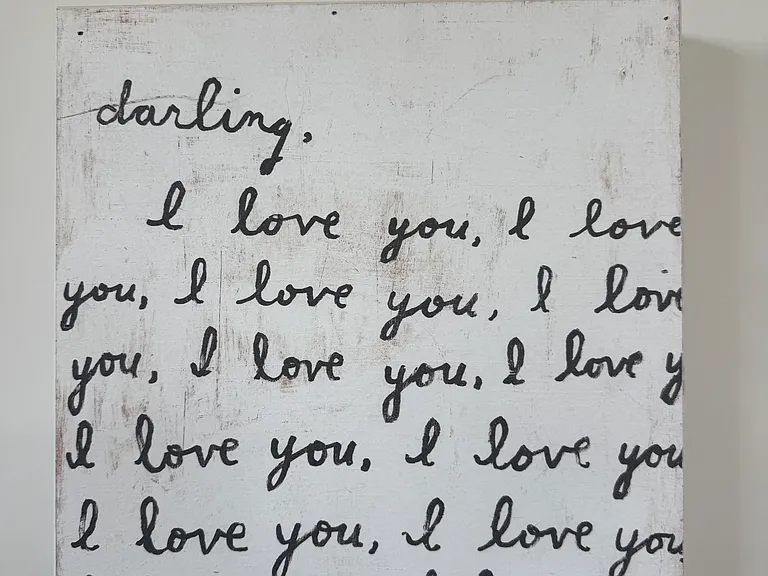 darling,
I love you, I love
you, I love you, I love
you, I love you, I love y
I love you, I love you
I love you, I love you